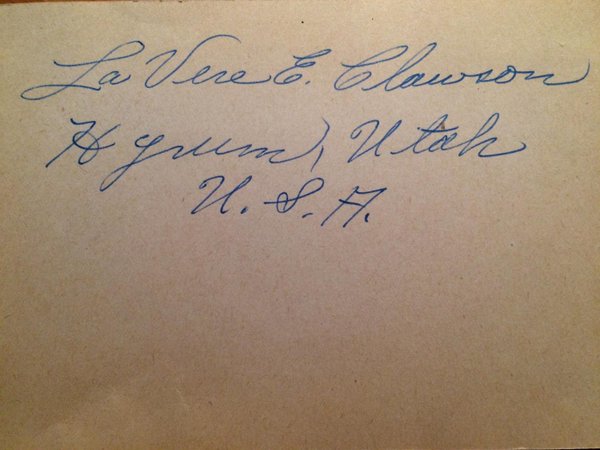 La Vere E. Clawson
Hyrum, Utah
U.S.A.